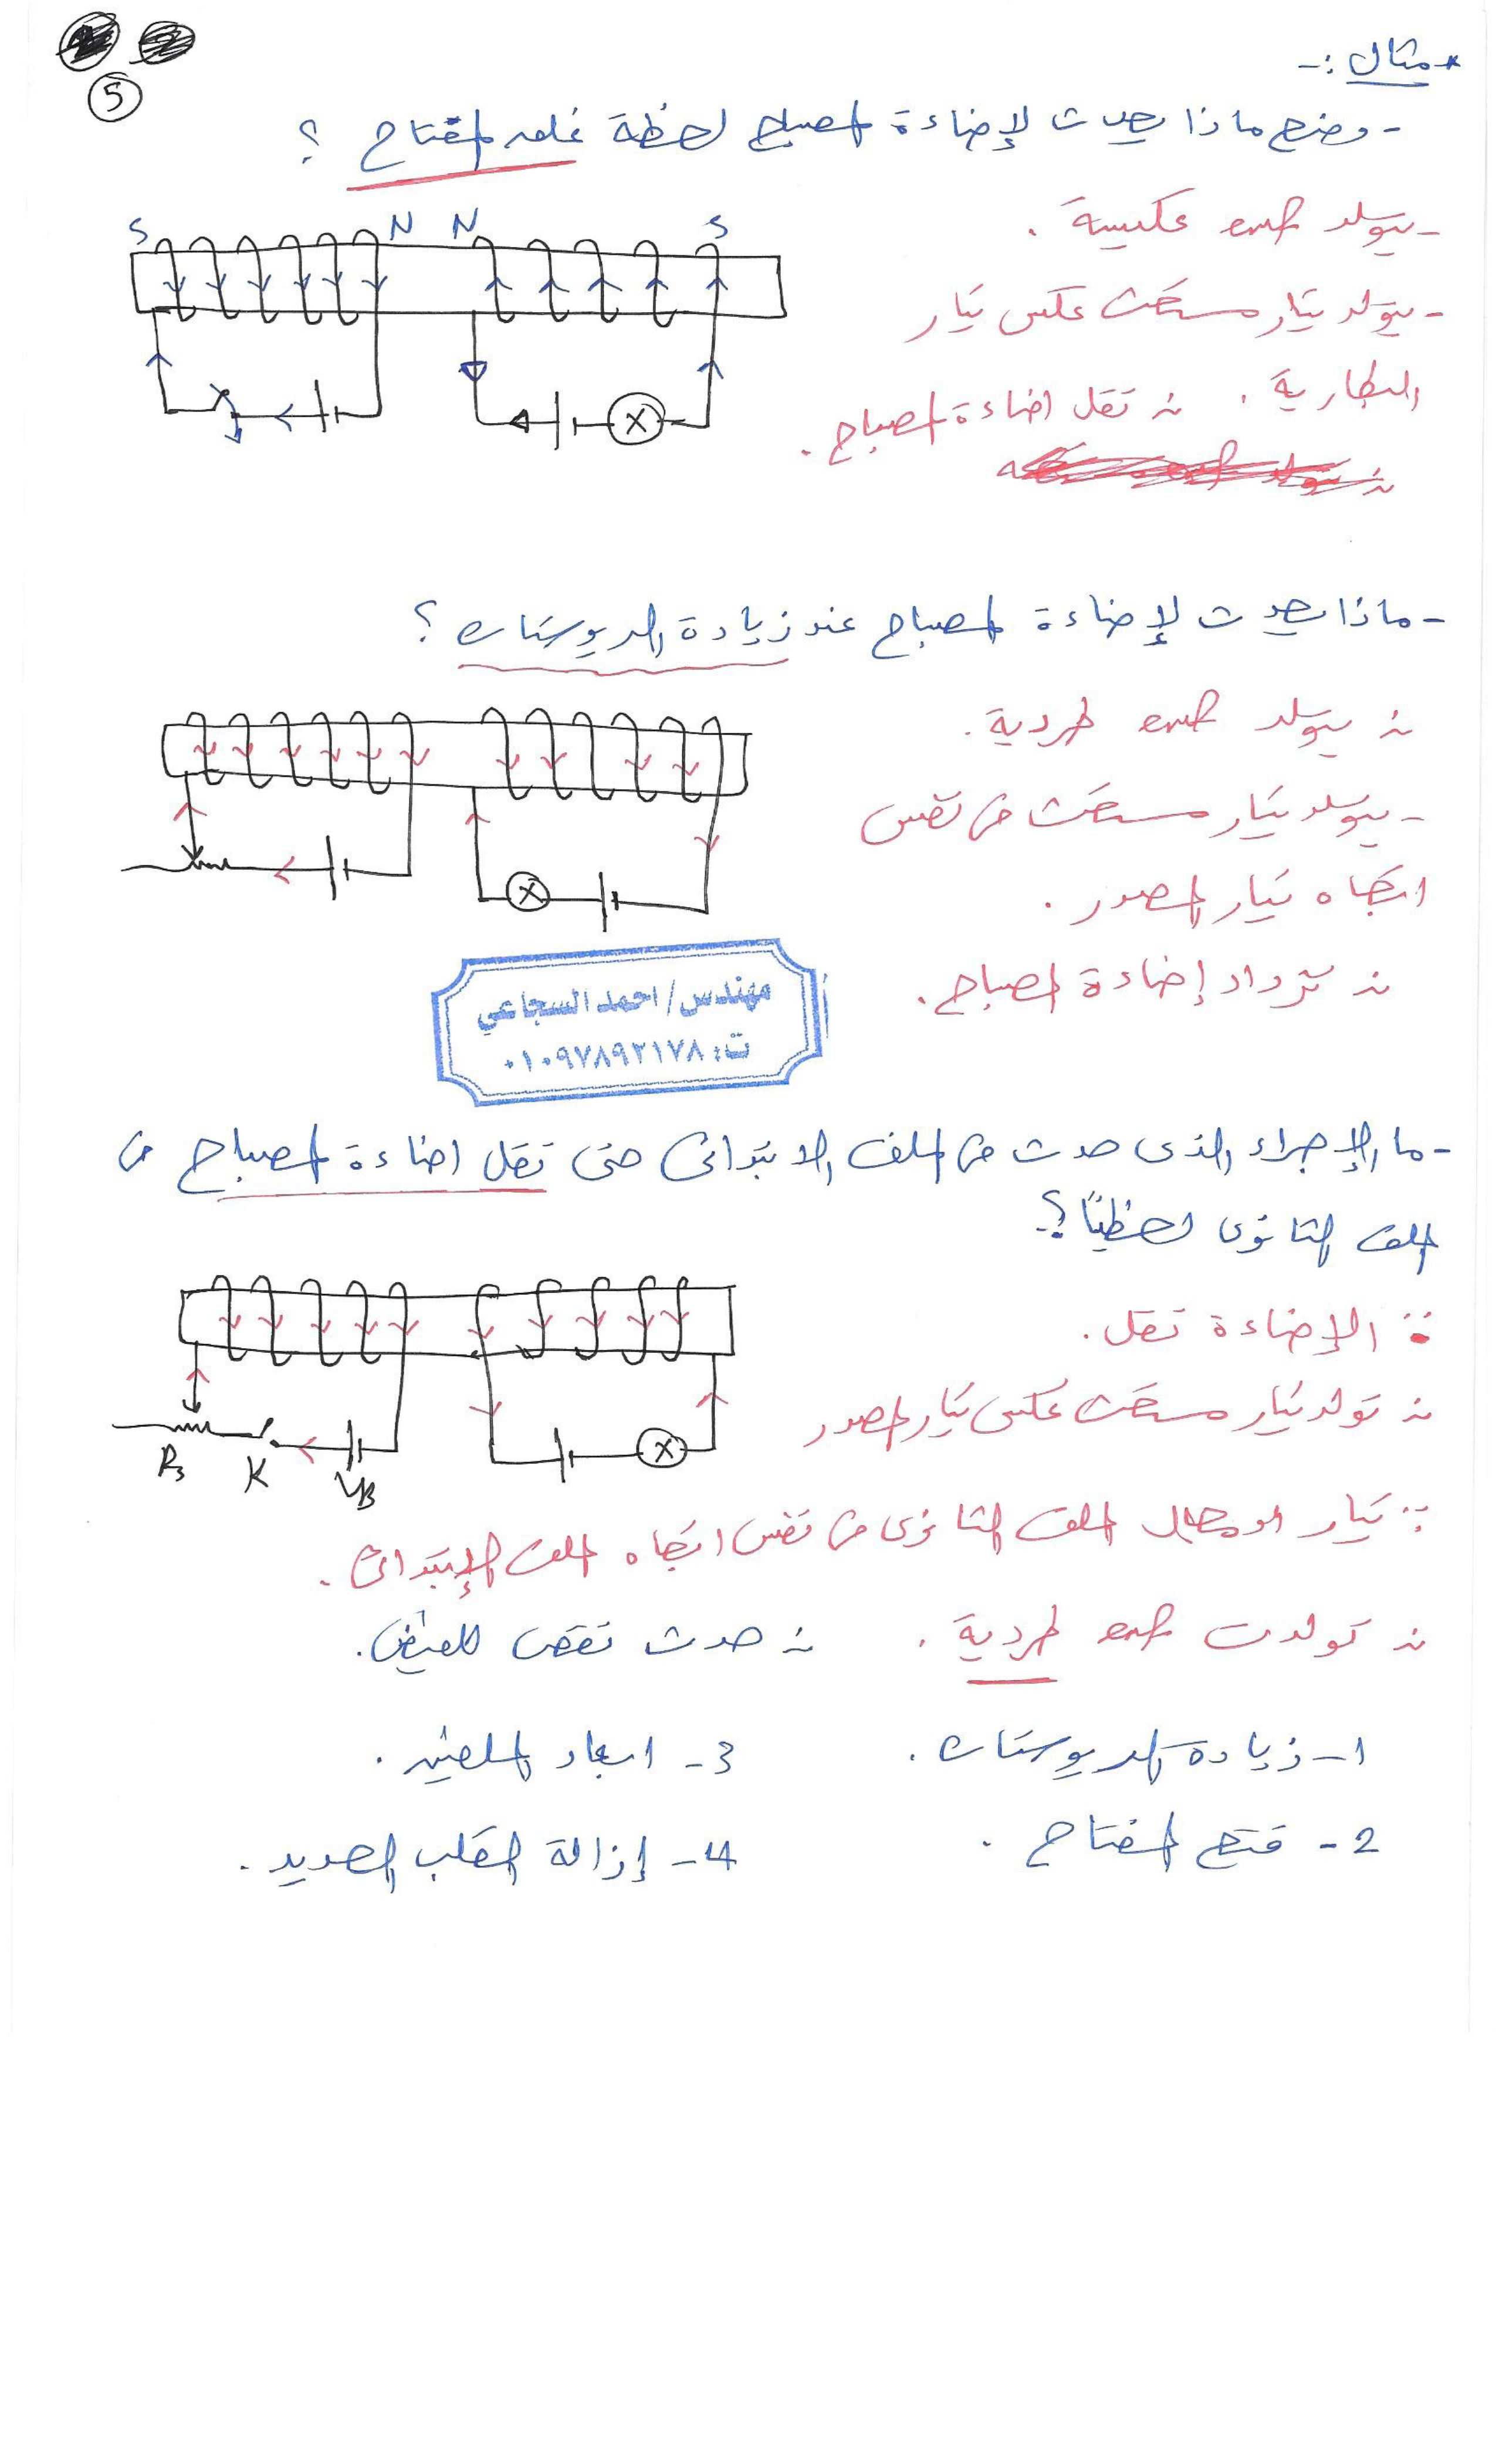 5
* مثال :-
- وضح ماذا يحدث لإضاءة المصباح لحظة غلق المفتاح ؟
S N N S
- يتولد emf عكسية .
- يتولد تيار مستحث عكس تيار
البطارية . ∴ تقل اضاءة المصباح .
- ماذا يحدث لإضاءة المصباح عند زيادة الريوستات ؟
∴ يتولد emf طردية .
- يتولد تيار مستحث في نفس
اتجاه تيار المصدر .
∴ تزداد إضاءة المصباح .
مهندس/ احمد السجاعي
ت: ٠١٠٩٧٨٩٢١٧٨
- ما الإجراء الذى حدث في الملف الابتدائى حتى تقل اضاءة المصباح في
الملف الثانوى لحظيًا ؟
∵ الإضاءة تقل .
∴ تولد تيار مستحث عكس تيار المصدر
Rs K VB
∵ تيار الملف الثانوى في نفس اتجاه الملف الإبتدائى .
∴ تولدت emf طردية . ∴ حدث نقص للفيض .
1- زيادة الريوستات . 3- ابعاد الملفين .
2- فتح المفتاح . 4- إزالة القلب الحديد .